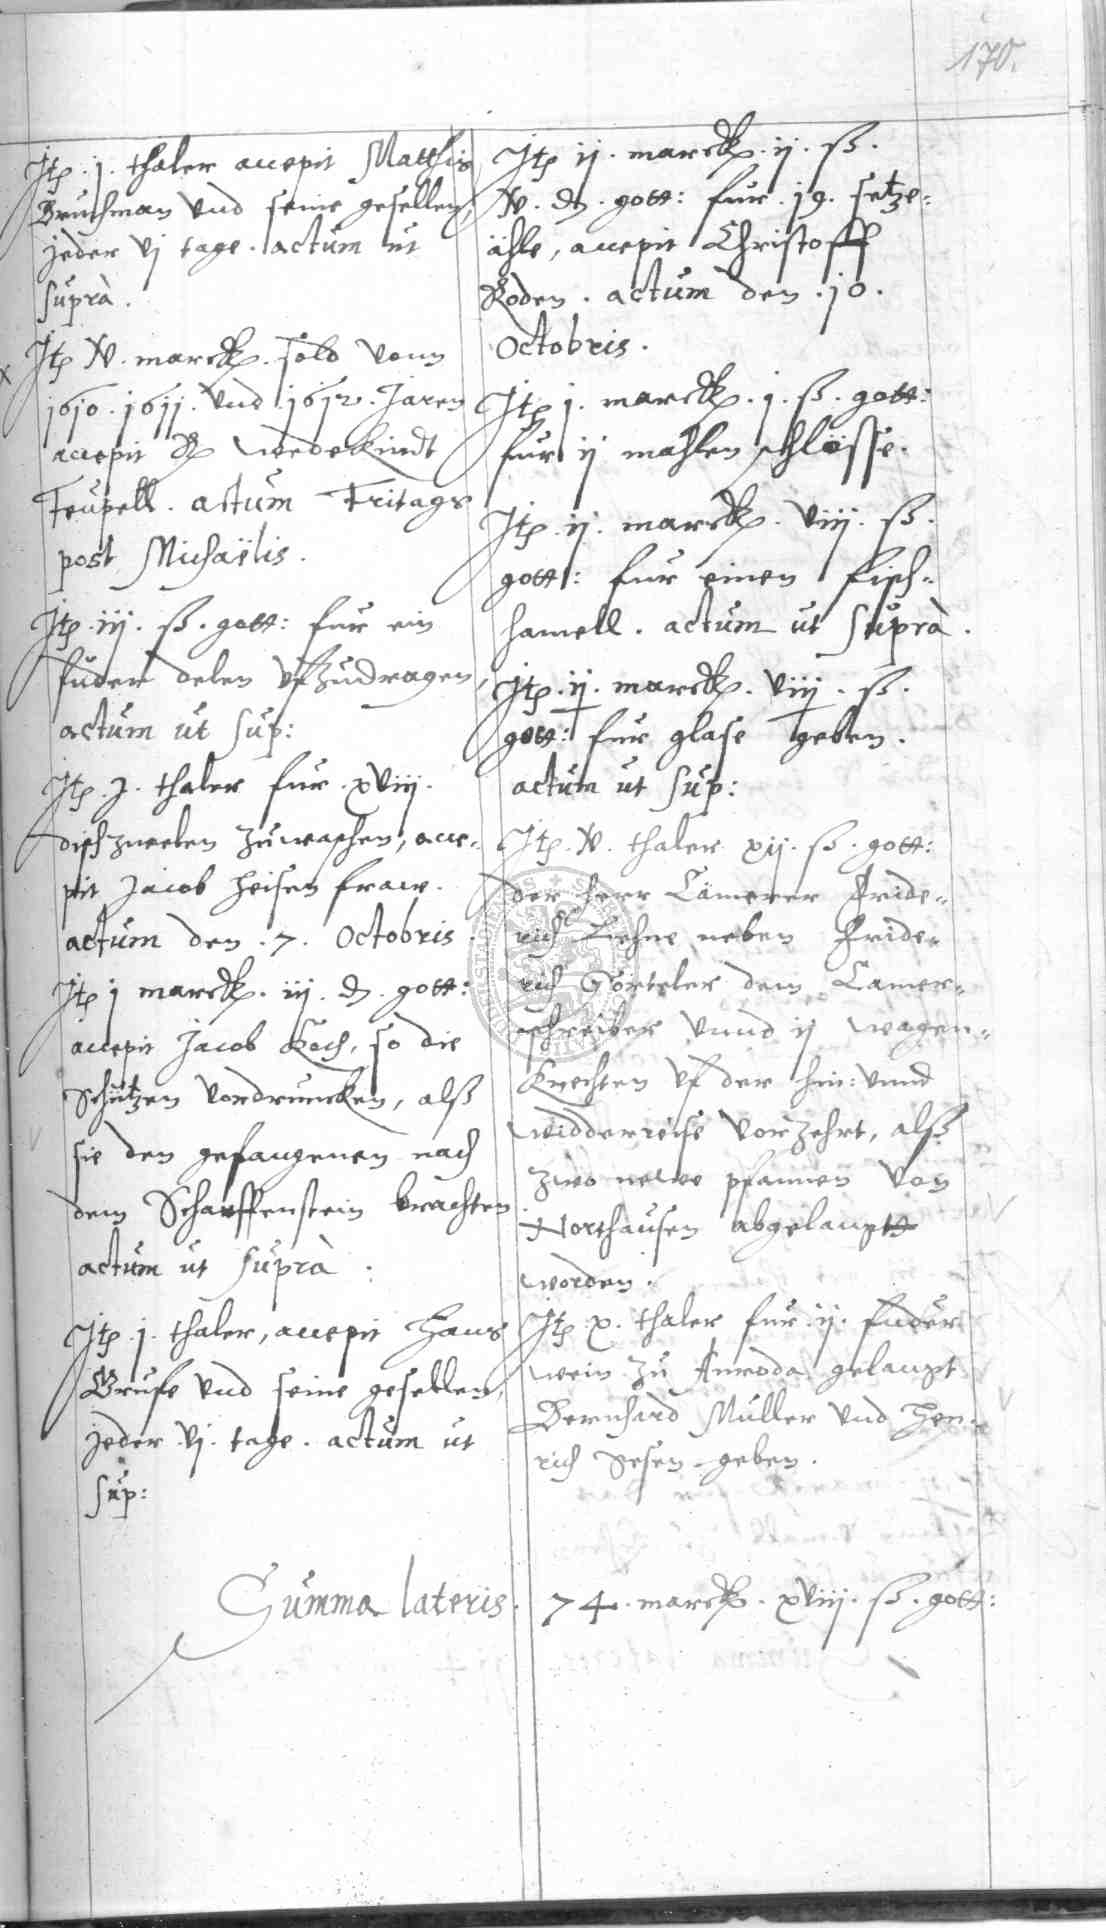 170.
Itp . j . thaler accepit Matthis
Bruchman vnd seine gesellen,
jeder vj tage . actum ut
suprà .
Itp v . marck . sold vonn
1610 . 1611 . vnd . 1612 . Jaren
accepit wedekindt
Teupell . actum Fritags
post Michaëlis .
Itp . iij . ß . gott : fur ein
fuder delen vfzudragen,
actum ut sup :
Itp . j . thaler fur . xviij .
dischzwelen zuwaschen, acce-
pit Jacob Heisen fraw .
actum den . 7 . Octobris .
Itp j marck . iij . d . gott :
accepit Jacob Koch, so die
Schützen vordruncken, alß
sie den gefangenen nach
dem Scharffenstein brachten
actum ut suprà .
Itp . j . thaler, accepit Hans
Grufe vnd seine gesellen,
jeder . vj . tage . actum ut
sup :
Itp ij . marck . ij . ß .
v . d . gott : fur . 19 . setze-
ähle, accepit Christoff
Roden . actum den . 10 .
Octobris .
Itp j . marck . j . ß . gott :
fur ij mahlen schlösse .
Itp . ij . marck . viij . ß .
gott : fur einen fisch-
hamell . actum ut suprà .
Itp . ij . marck . viij . ß .
gott : fur glase geben .
actum ut sup :
Itp . v . thaler xij . ß . gott :
der herr Cämerer Fride-
rich Liehne neben Fride-
rich Görteler dem Camer-
schreiber vnnd ij wagen-
knechten vf der hin : vnnd
widderreise vorzehrt, alß
zwo newe pfannen von
Northausen abgelangtt
worden .
Itp x . thaler fur . ij . fuder
wein zu Anroda gelangt
Bernhard Müller vnd Hen-
rich Sesen geben .
Summa lateris . 74 . marck . xviij . ß . gott :